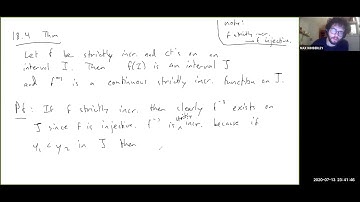 note:
f strictly incr.
⟹ f injective.
18.4 Thm
Let f be strictly incr. and ct's on an
interval I. Then f(I) is an interval J
and f⁻¹ is a continuous strictly incr. function on J.
Pf: If f strictly incr. then clearly f⁻¹ exists on
J since f is injective. f⁻¹ is strictly incr. because if
y₁ < y₂ in J then
2020-07-13 23:41:46